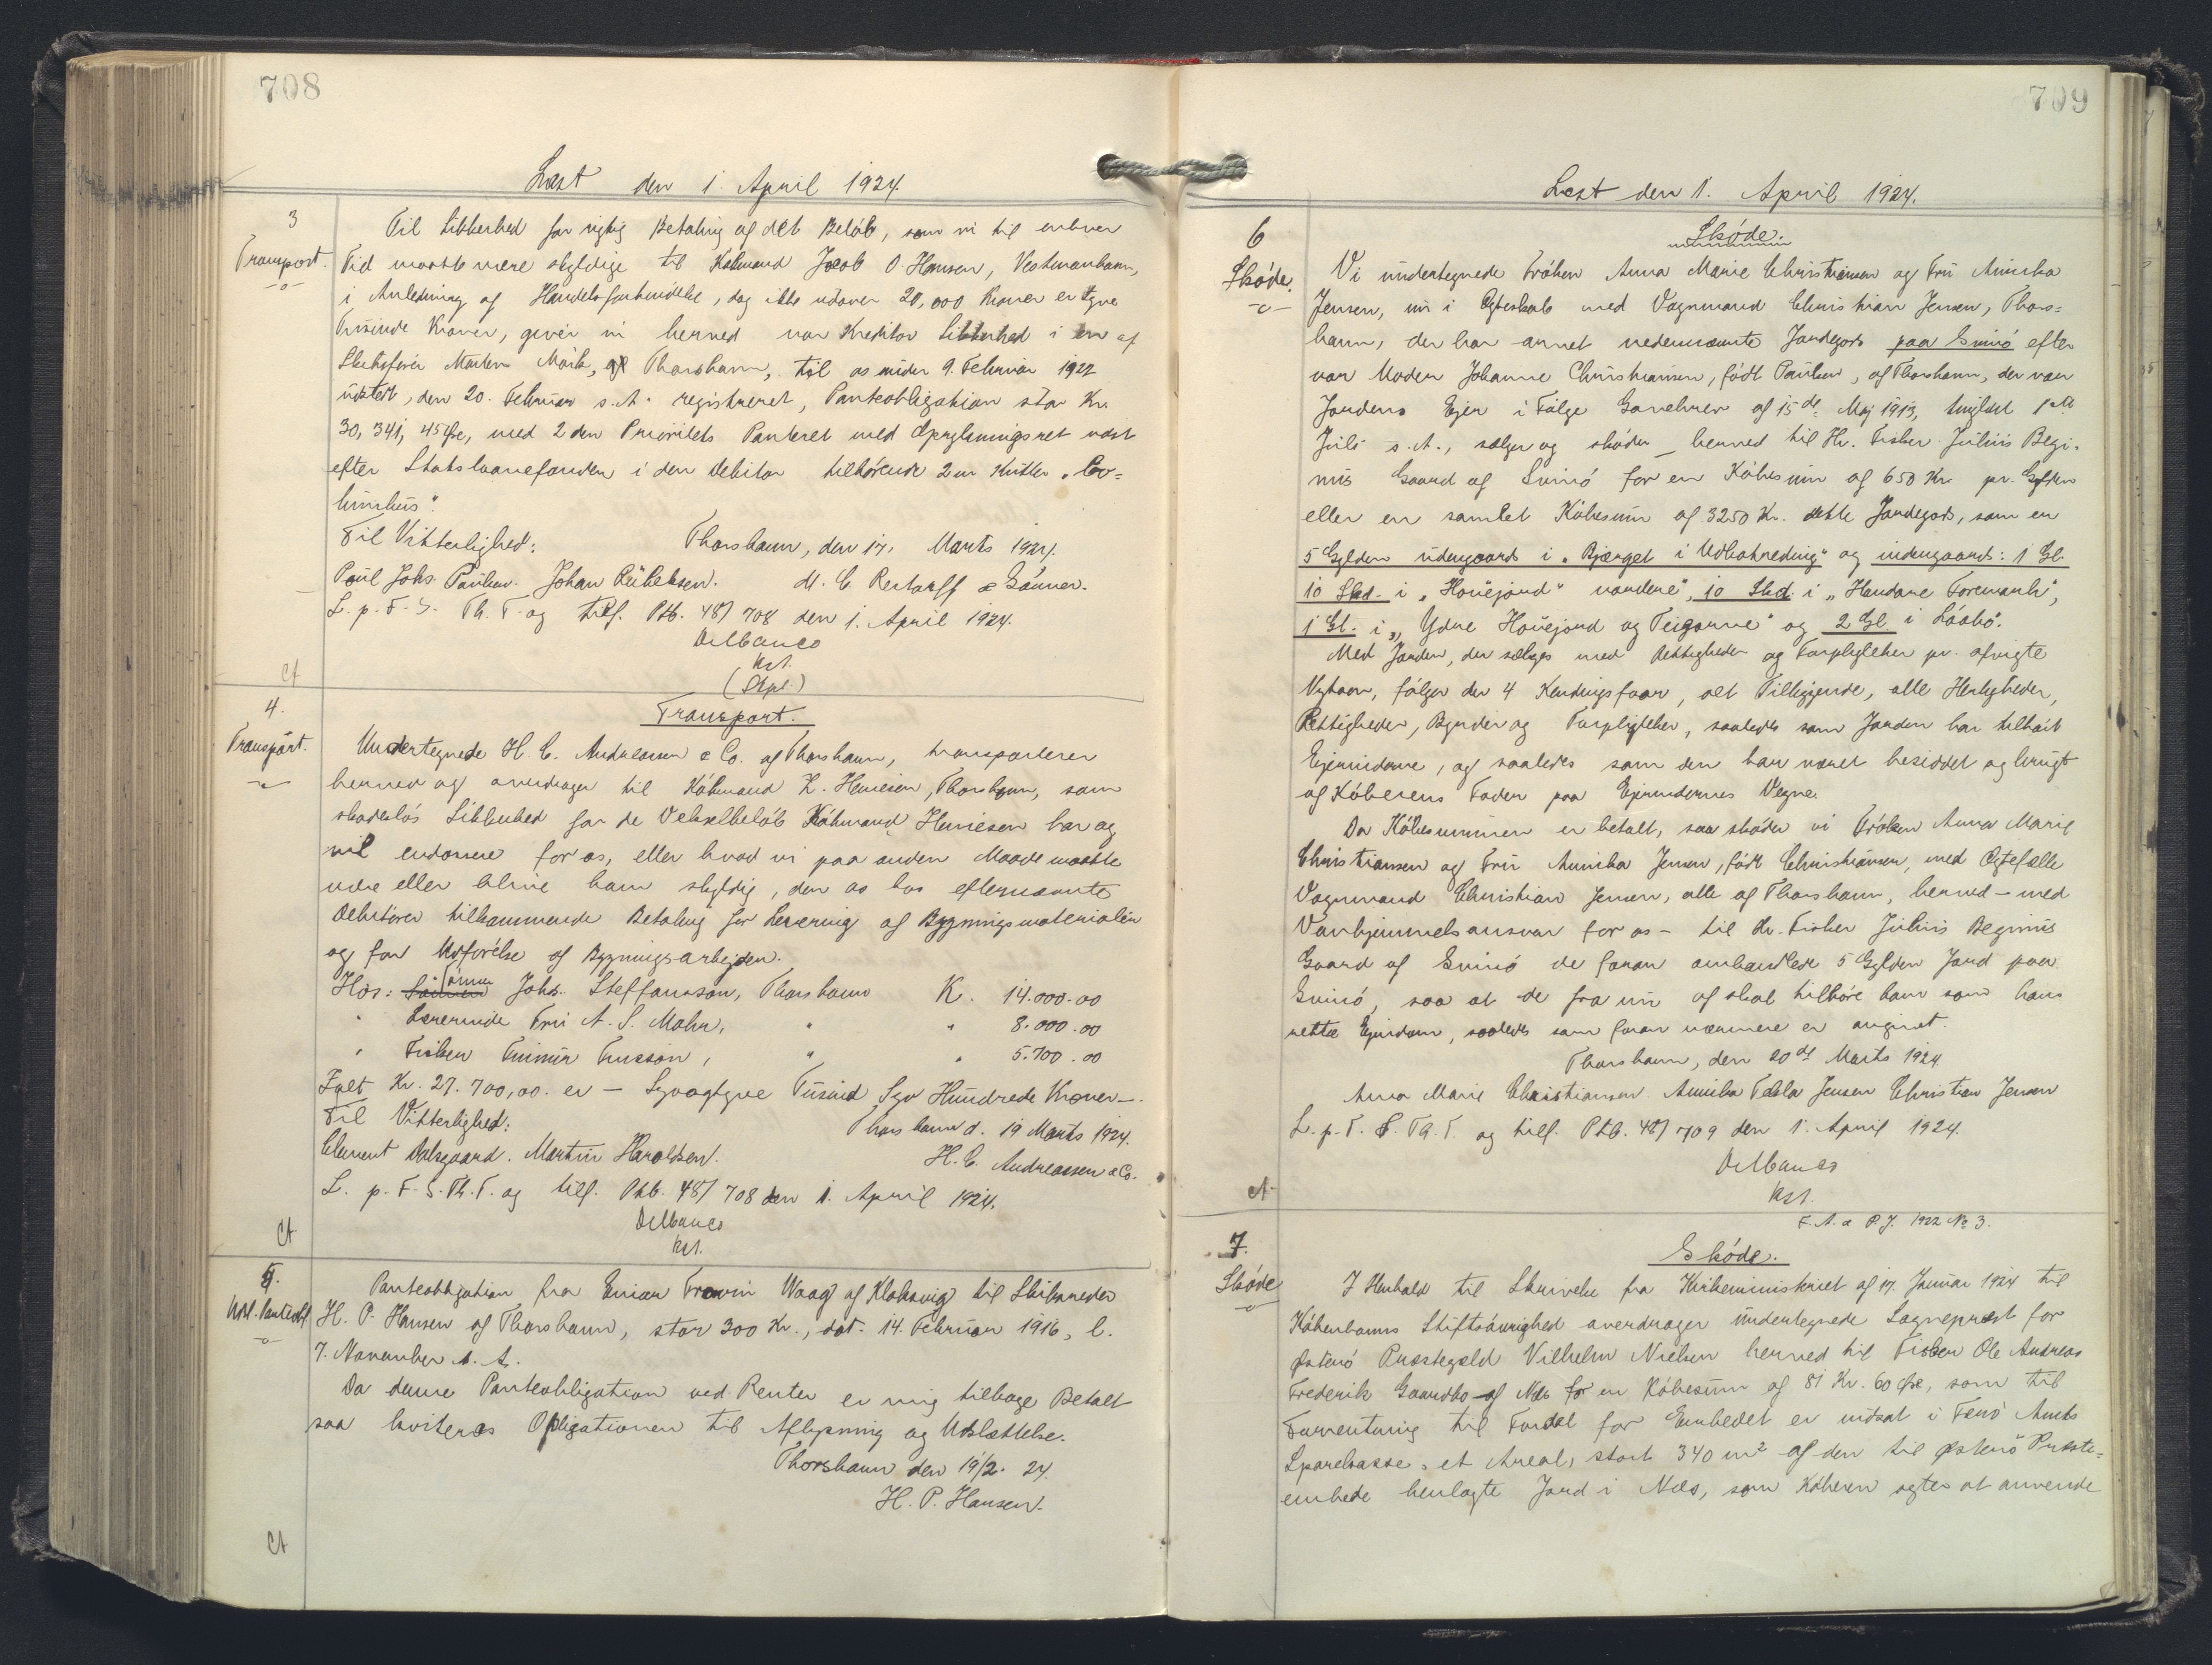 708
Læst den 1. April 1924.
3
Transport.
Til Sikkerhed for rigtig Betaling af det Beløb, som vi til enhver
Tid maatte være skyldige til Købmand Jacob O. Hansen, Vestmanhavn,
i Anledning af Handelsforbindelse, dog ikke udover 20,000 Kroner er tyve
Tusinde Kroner, giver vi herved vor Kreditor Sikkerhed i en af
Skibsfører Morten Mørk, af Thorshavn, til os under 9. Februar 1922
udstedt, den 20. Februar s. A. registreret, Panteobligation stor Kr.
30,341, 45 Øre, med 2den Prioritets Panteret med Oprykningsret næst
efter Statslaanefonden i den Debitor tilhørende Kutter
Til Vitterlighed:
Thorshavn, den 17. Marts 1924.
Poul Johs. Poulsen. Johan M. C. Restorff & Sønner.
L. p. F. S. Th. T. og tilf. Ptb. 48/708 den 1. April 1924.
Delbanco
kst.
(Expl.)
Ct
4.
Transport.
Transport.
Undertegnede H. C. Andreasen & Co. af Thorshavn, transporterer
herved og overdrager til Købmand K. Heinesen, Thorshavn, som
skadesløs Sikkerhed for de Vekselbeløb Købmand Heinesen har og
vil endossere for os, eller hvad vi paa anden Maade maatte
være eller blive ham skyldig, den os hos efternævnte
Debitorer tilkommende Betaling for Levering af Bygningsmaterialer
og for Udførelse af Bygningsarbejden.
Hos: Johs. Steffansson, Thorshavn K. 14.000.00
" Lærerinde Fru A. S. Mohr, " " 8.000.00
" Fisker " " 5.700.00
Ialt Kr. 27.700,00. er — Syvogtyve Tusind Syv Hundrede Kroner —.
Til Vitterlighed:
Thorshavn d. 19 Marts 1924.
Clement Dalsgaard. Martin Haraldsen.
H. C. Andreassen & Co.
L. p. F. S. Th. T. og tilf. Ptb. 48/708 den 1. April 1924.
Delbanco
kst.
Ct
5.
Udsl. Panteobl.
Panteobligation fra Waag af Klaksvig til Skibsreder
H. P. Hansen af Thorshavn, stor 300 Kr., dat. 14. Februar 1916, l.
7. November s. A.
Da denne Panteobligation ved Renter er mig tilbage Betalt
saa kviteres Obligationen til Aflysning og Udslettelse.
Thorshavn den 19/2. 24.
H. P. Hansen.
Ct
709
Læst den 1. April 1924.
6
Skøde.
Skøde.
Vi undertegnede Frøken Anna Marie Christiansen og Fru Annika
Jensen, nu i Ægteskab med Vognmand Christian Jensen, Thors=
havn, der har arvet nedennævnte Jordegods paa Svinø efter
vor Moder Johanne Christiansen, født Poulsen, af Thorshavn, der var
Jordens Ejer i Følge Gavebrev af 15de Maj 1913, tinglæst 1ste
Juli s. A., sælger og skøder herved til Hr. Fisker Julius Begi=
nus Gaard af Svinø for en Købesum af 650 Kr. pr. Gylden
eller en samlet Købesum af 3250 Kr. dette Jordegods, som er
5 Gylden udengaards i „Bjærget i Udbotneding“ og indengaards: 1 Gl.
10 Skd. i „Houejord“ 10 Skd. i
1 Gl. i „Ydre Houejord og Teigarne“ og 2 Gl. i
Med Jorden, der sælges med Rettigheder og Forpligtelser pr. afvigte
Nytaar, følger der 4 Kendingsfaar, alt Tilliggende, alle Herligheder,
Rettigheder, Byrder og Forpligtelser, saaledes som Jorden har tilhørt
Ejerinderne, og saaledes som den har været besiddet og brugt
af Køberens Fader paa Ejerindernes Vegne.
Da Købesummen er betalt, saa skøder vi Frøken Anna Marie
Christiansen og Fru Annika Jensen, født Christiansen, med Ægtefælle
Vognmand Christian Jensen, alle af Thorshavn, herved — med
Vanhjemmelsansvar for os — til Hr. Fisker Julius Beginus
Gaard af Svinø de foran omhandlede 5 Gylden Jord paa
Svinø, saa at de fra nu af skal tilhøre ham som hans
rette Ejendom, saaledes som foran nærmere er angivet.
Thorshavn, den 20de Marts 1924
Anna Marie Christiansen Annika Tekla Jensen Christian Jensen
L. p. F. S. Th. T. og tilf. Ptb. 48/709 den 1. April 1924.
Delbanco
kst.
Ct
F. A. a P. J. 1922 No 3.
7.
Skøde
Skøde.
I Henhold til Skrivelse fra Kirkeministeriet af 17. Januar 1924 til
Københavns Stiftsøvrighed overdrager undertegnede Sognepræst for
Østerø Præstegæld Vilhelm Nielsen herved til Fisker Ole Andreas
Frederik Gaardbo af Næs for en Købesum af 81 Kr. 60 Øre, som til
Forrentning til Fordel for Embedet er indsat i Færø Amts
Sparekasse, et Areal, stort 340 m² af den til Østerø Præste=
embede henlagte Jord i Næs, som Køberen agter at anvende